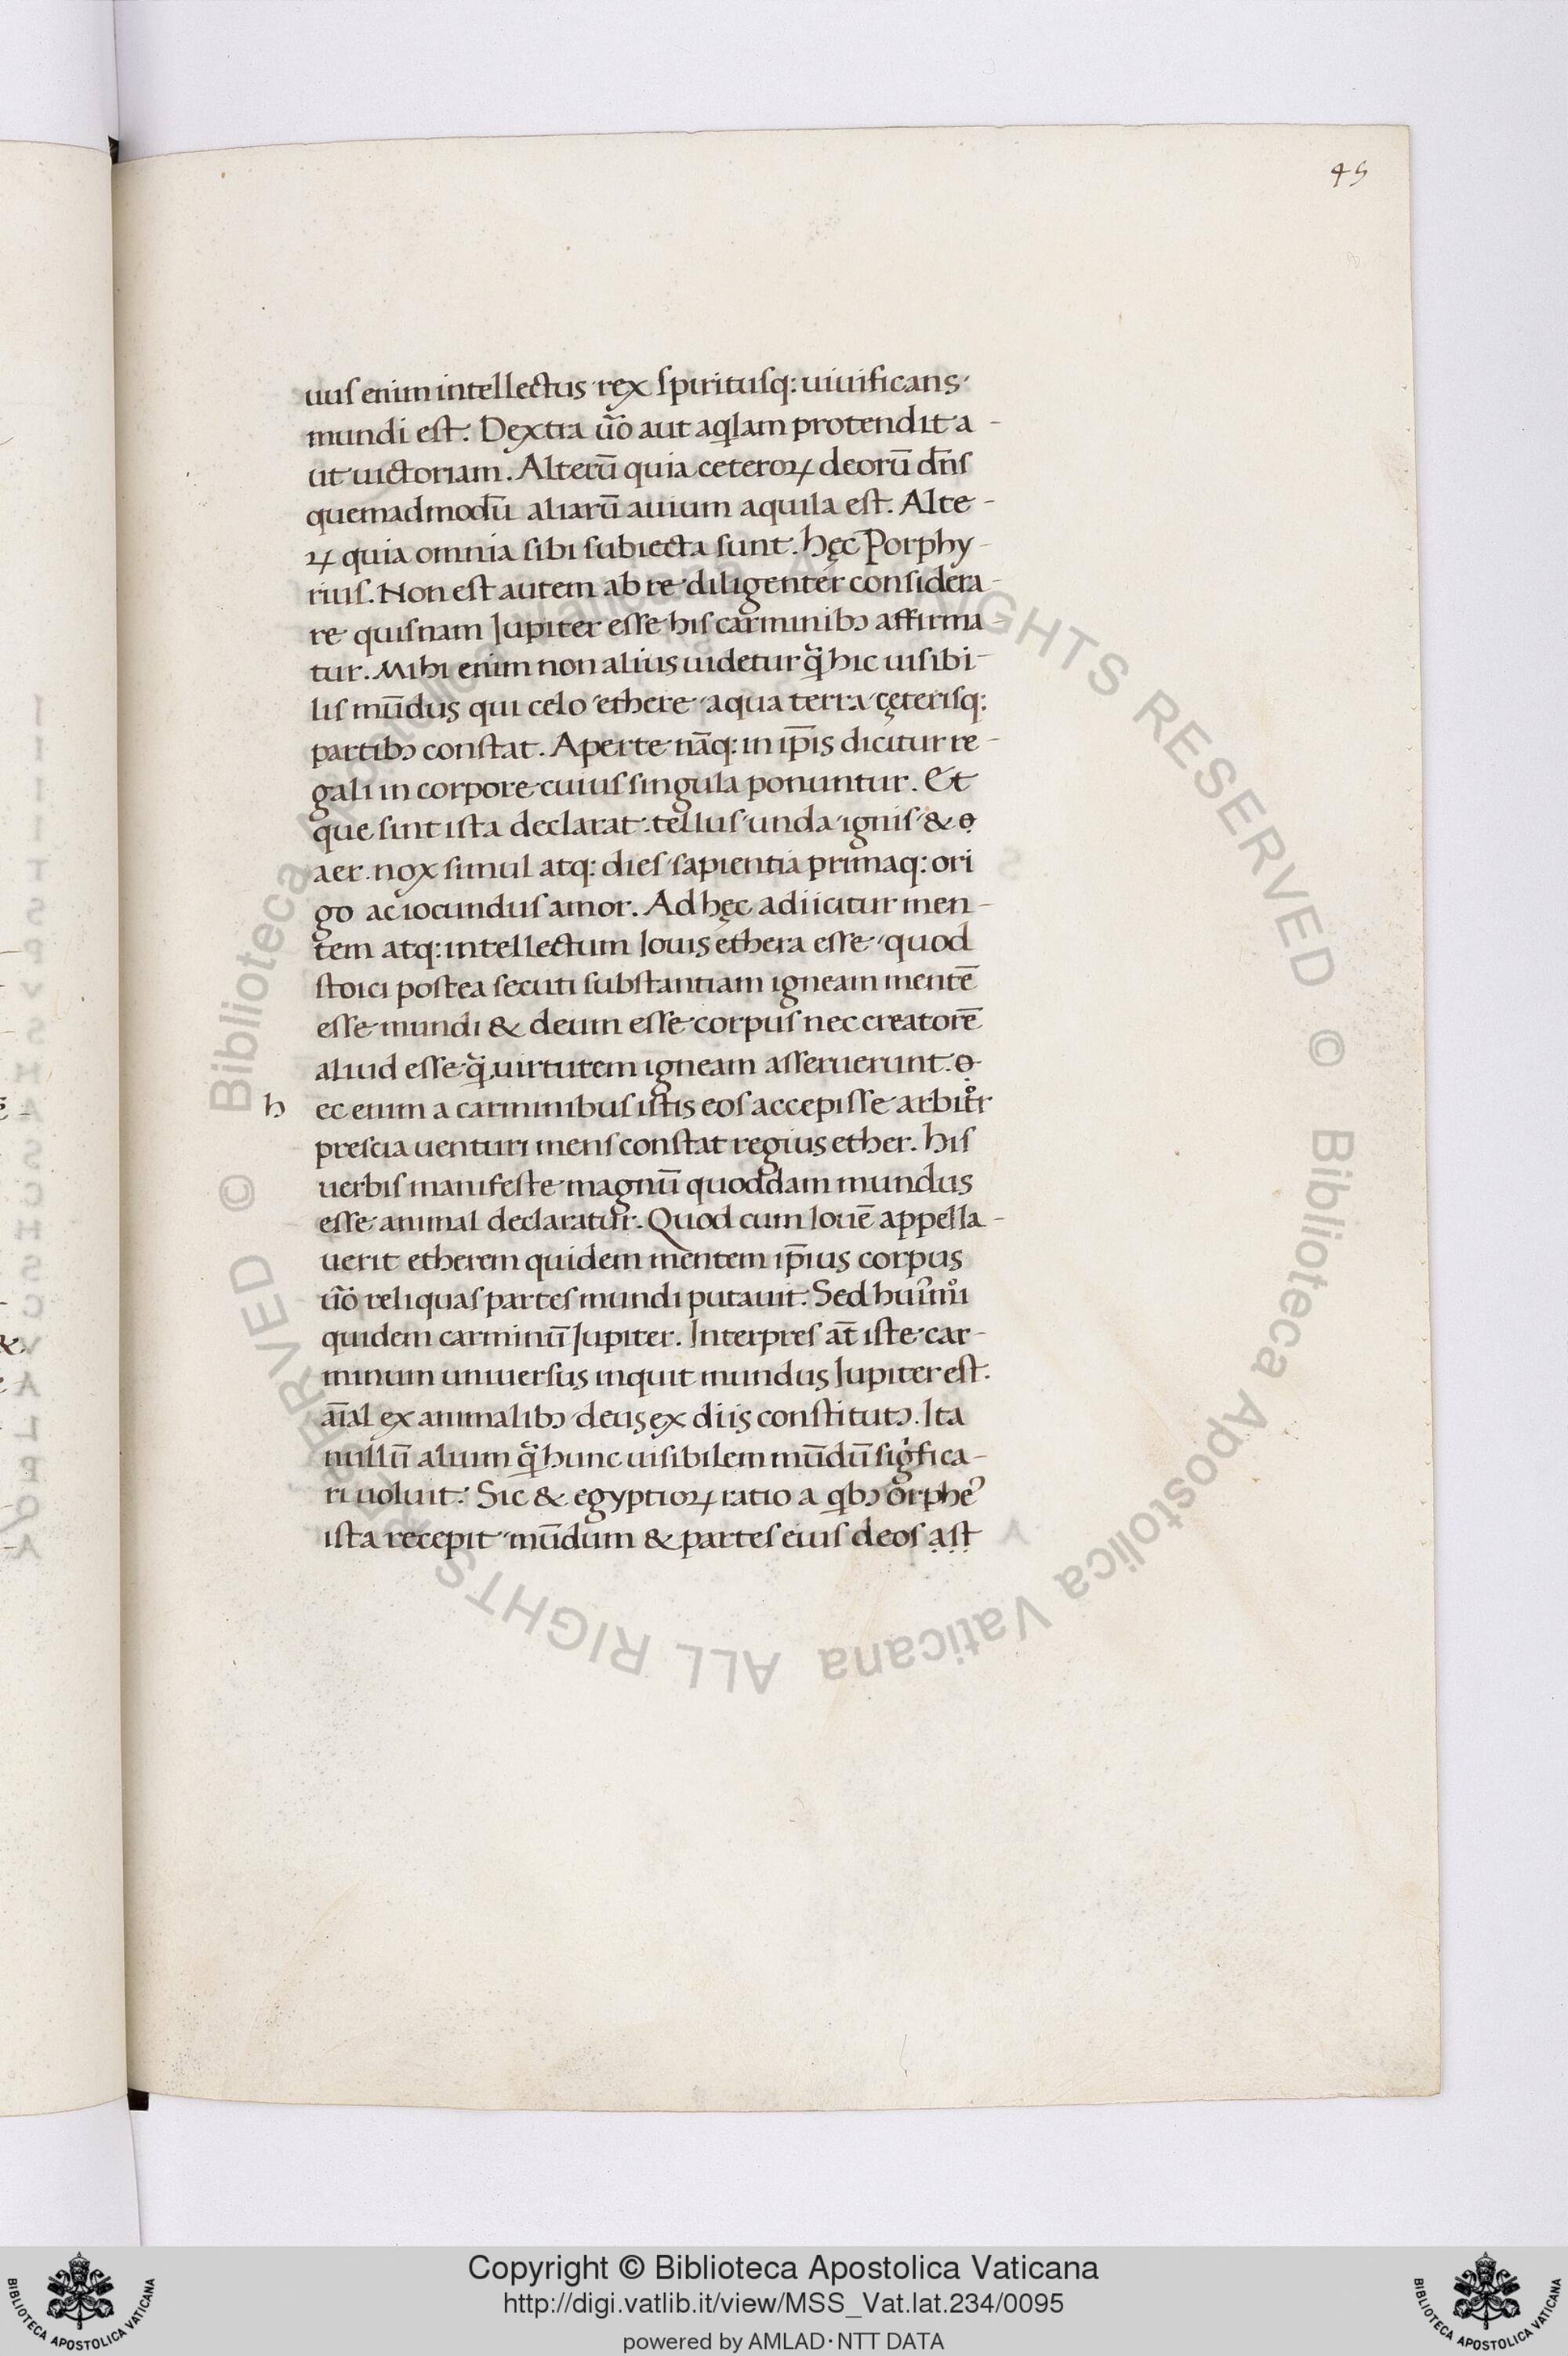 45
uus enim intellectus rex spiritusq: uiuificans
mundi est. Dextra ũo aut aq̃lam protendit a -
ut uictoriam. Alterũ quia ceteroꝝ deorũ dñs
quemadmodũ aliarũ auium aquila est. Alte -
ꝝ quia omnia sibi subiecta sunt. hęc Porphy -
rius. Non est autem ab re diligenter considera -
re quisnam Jupiter esse his carminibꝰ affirma -
tur. Mihi enim non alius uidetur q̃ hic uisibi -
lis mũdus qui celo ethere aqua terra cęterisq:
partibꝰ constat. Aperte nãq: in ip̄is dicitur re -
gali in corpore cuius singula ponuntur. Et
que sint ista declarat. tellus unda ignis & ọ
aer nox simul atq: dies sapientia primaq: ori
go ac iocundus amor. Ad hęc adiicitur men -
tem atq: intellectum Iouis ethera esse quod
stoici postea secuti substantiam igneam mentẽ
esse mundi & deum esse corpus nec creatorẽ
aliud esse q̃ uirtutem igneam asseruerunt. ọ
h ec enim a carminibus istis eos accepisse arbitr̊
prescia uenturi mens constat regius ether. his
uerbis manifeste magnũ quoddam mundus
esse animal declaratur. Quod cum Iouẽ appella -
uerit etherem quidem mentem ip̄ius corpus
ũo reliquas partes mundi putauit. Sed huiꝰmͦi
quidem carminũ Jupiter. Interpres aт̃ iste car -
minum uniuersus inquit mundus Jupiter est.
aĩal ex animalibꝰ deus ex diis constitutꝰ. Ita
nullũ alium q̃ hunc uisibilem mũdũ sigͥfica -
ri uoluit. Sic & egyptioꝝ ratio a qͥbꝰ orpheꝰ
ista recepit mũdum & partes eius deos ạṣṭ
Copyright © Biblioteca Apostolica Vaticana
http://digi.vatlib.it/view/MSS_Vat.lat.234/0095
powered by AMLAD·NTT DATA